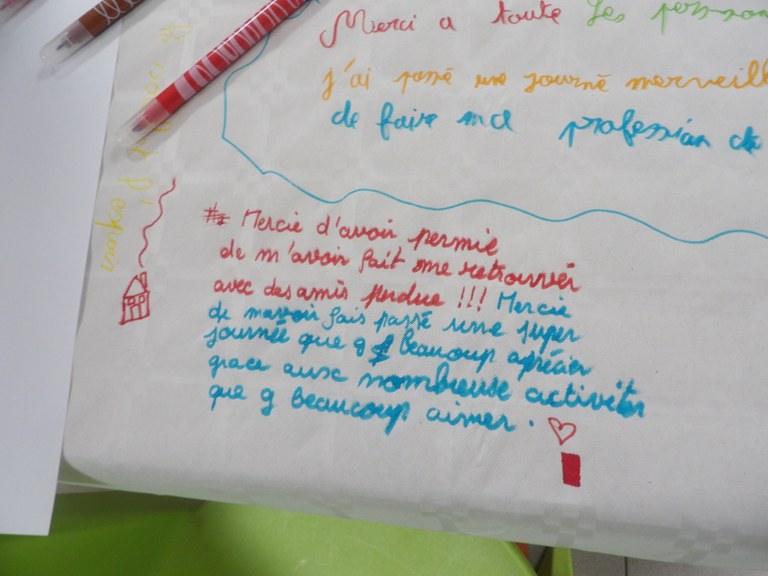 Merci a toute les person
j'ai passé une journé merveill
de faire ma profession de
Mercie d'avoir permie
de m'avoir fait me retrouver
avec des amis perdue !!! Mercie
de mavoir fais passé une super
journée que g beaucoup apréçier
grace aux nombreuse activités
que g beaucoup aimer.